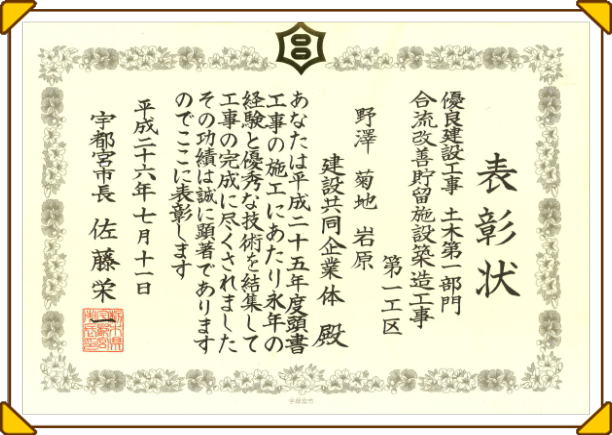 表彰状
優良建設工事 土木第一部門
合流改善貯留施設築造工事
第一工区
野澤 菊地 岩原
建設共同企業体 殿
あなたは平成二十五年度頭書
工事の施工にあたり永年の
経験と優秀な技術を結集して
工事の完成に尽くされました
その功績は誠に顕著であります
のでここに表彰します
平成二十六年七月十一日
宇都宮市長 佐藤栄一
宇都宮市